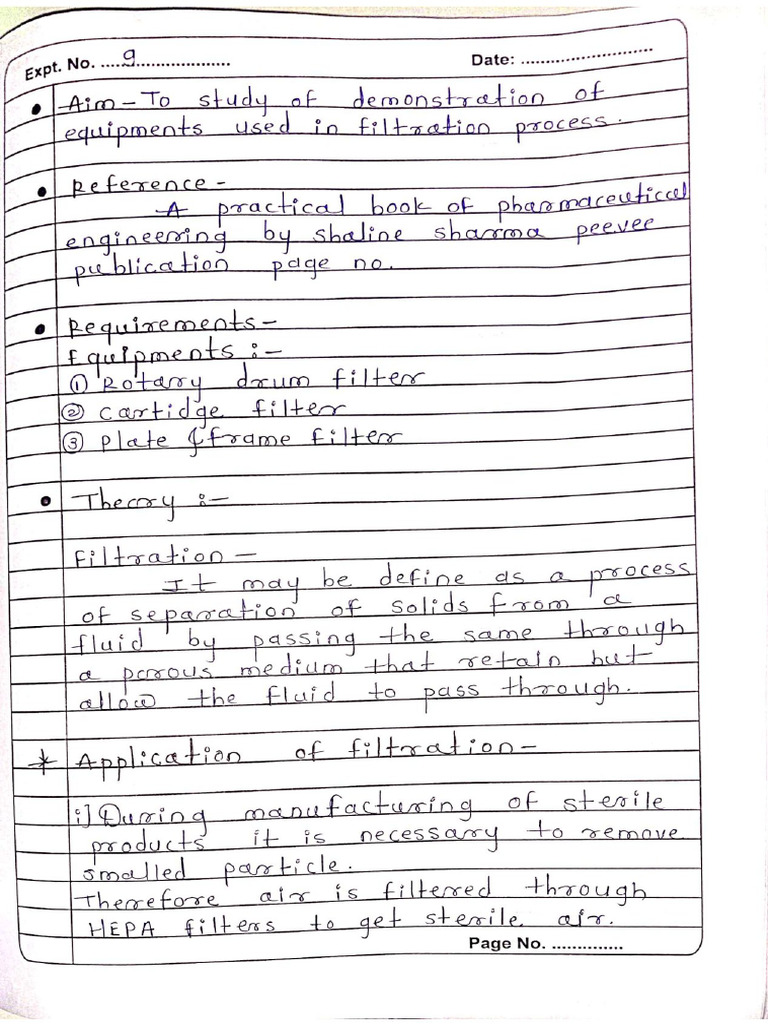 Expt. No. .....9....................
Date: ............................
• Aim - To study of demonstration of
equipments used in filtration process.
• Reference -
A practical book of pharmaceutical
engineering by shaline sharma peevee
publication page no.
• Requirements -
Equipments :-
① Rotary drum filter
② cartidge filter
③ Plate & frame filter
• Theory :-
Filtration -
It may be define as a process
of separation of solids from a
fluid by passing the same through
a porous medium that retain but
allow the fluid to pass through.
* Application of filtration -
i] During manufacturing of sterile
products it is necessary to remove
smalled particle.
Therefore air is filtered through
HEPA filters to get sterile air.
Page No. ..............